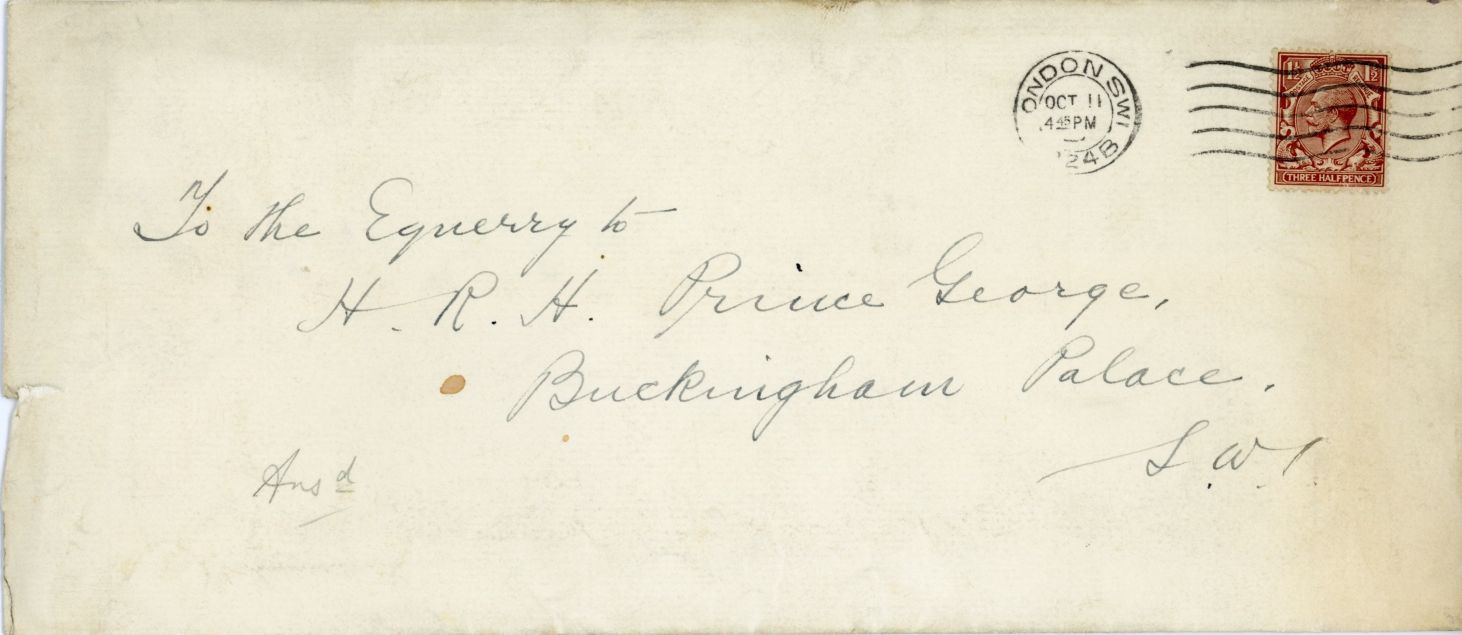 ONDON SW1
OCT 11
4 45 PM
24B
1½ 1½
THREE HALFPENCE
To the Equerry to
H. R. H. Prince George,
Buckingham Palace.
S.W.1
Ansd